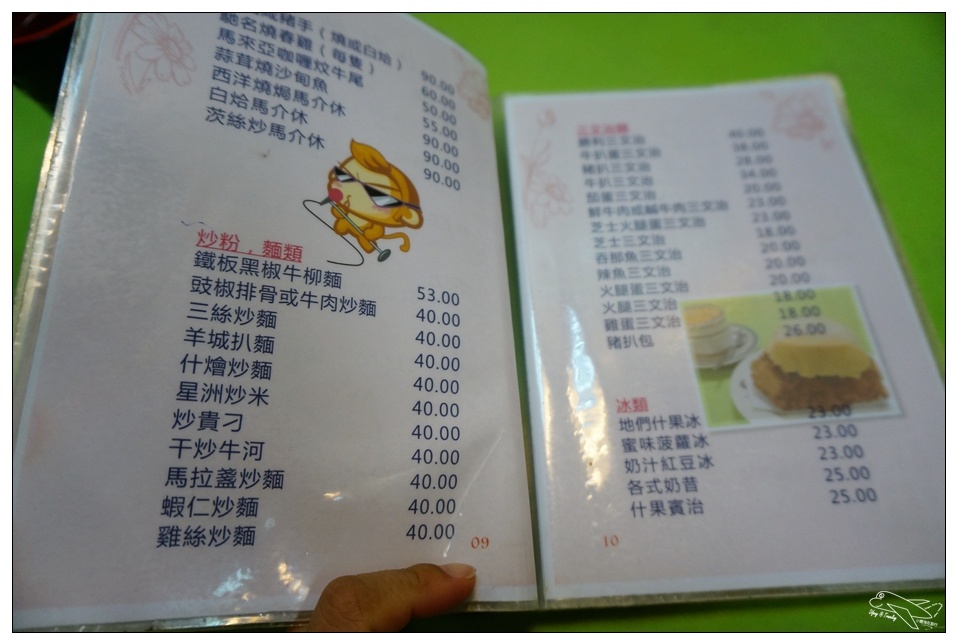 豬手（燒或白烚） 90.00
馳名燒春雞（每隻） 60.00
馬來亞咖喱炆牛尾 50.00
蒜茸燒沙甸魚 55.00
西洋燒焗馬介休 90.00
白烚馬介休 90.00
茨絲炒馬介休 90.00
炒粉，麵類
鐵板黑椒牛柳麵 53.00
豉椒排骨或牛肉炒麵 40.00
三絲炒麵 40.00
羊城扒麵 40.00
什燴炒麵 40.00
星洲炒米 40.00
炒貴刁 40.00
干炒牛河 40.00
馬拉盞炒麵 40.00
蝦仁炒麵 40.00
雞絲炒麵 40.00
09
三文治類
勝利三文治 40.00
牛扒蛋三文治 38.00
豬扒三文治 28.00
牛扒三文治 34.00
茄蛋三文治 20.00
鮮牛肉或鹹牛肉三文治 23.00
芝士火腿蛋三文治 23.00
芝士三文治 18.00
吞那魚三文治 20.00
辣魚三文治 20.00
火腿蛋三文治 20.00
火腿三文治 18.00
雞蛋三文治 18.00
豬扒包 26.00
冰類
地們什果冰 23.00
蜜味菠蘿冰 23.00
奶汁紅豆冰 23.00
各式奶昔 25.00
什果賓治 25.00
10